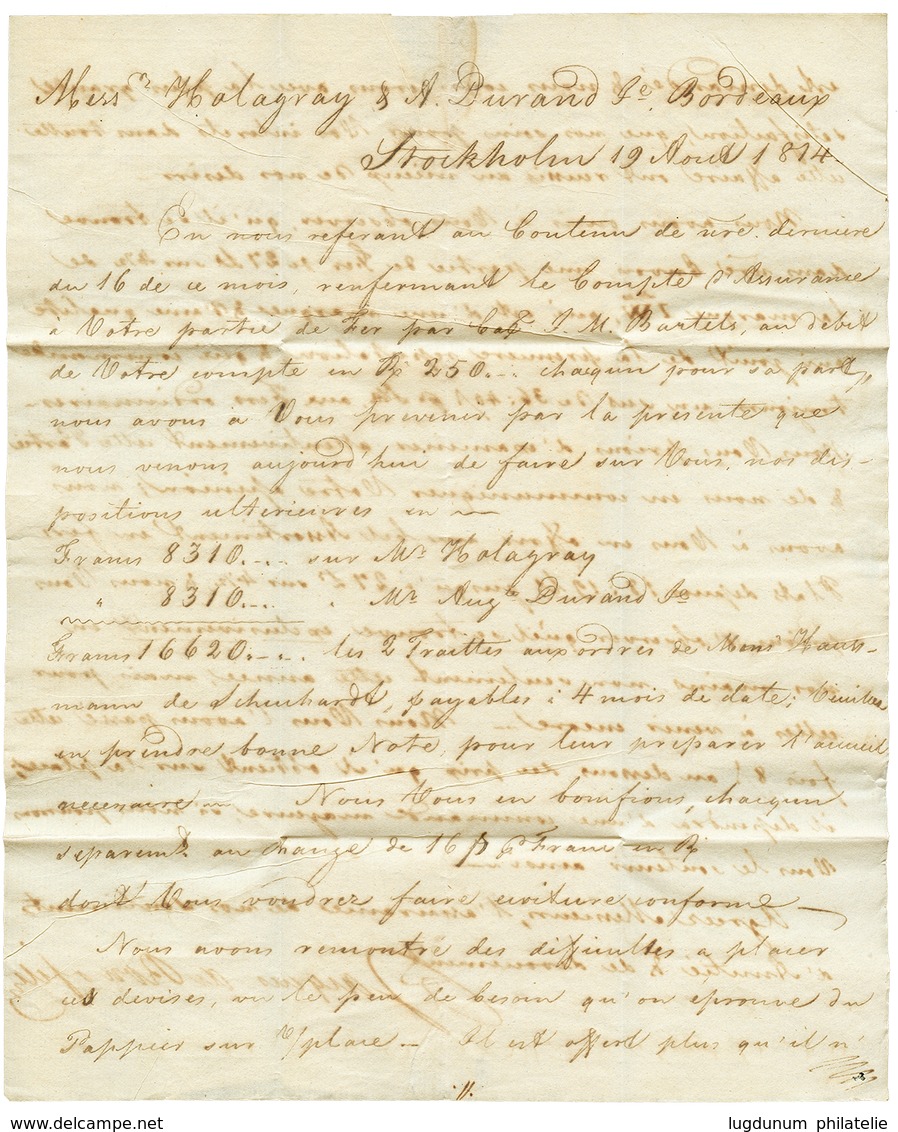 Mess.rs Holagray & A. Durand Je. Bordeaux
Stockholm 19 Aout 1814
En nous referant au Contenu de nre. derniere
du 16 de ce mois, renfermant le Compte d'Assurance
à Votre partie de Fer par Cap J. M. Bartels, au debit
de Votre compte en R 250.-. chaqun pour sa part,,
nous avons a Vous prevenir par la presente que
nous venons aujourd'hui de faire sur Vous, nos dis-
positions ulterieures en
Francs 8310.-.. sur Mr. Holagray
" 8310.-.. . Mr. Augte Durand Je
Francs 16620.-.. les 2 Traittes aux ordres de Mons.r Haus-
mann de payables à 4 mois de date; Veuilles
en prendre bonne Note, pour leur preparer l'acueil
necessaire — Nous Vous en bonifions, chaqun
separemt. au change de 16 ß pr Franc en R
dont Vous voudrez faire ecriture conforme —
Nous avons remontré des difficultes, a placer
ces devises, vu le peu de besoin qu'on eprouve du
Pappier sur V/place — Il est offert plus qu'il n'
.//.
lugdunum philatelie
www.delcampe.net